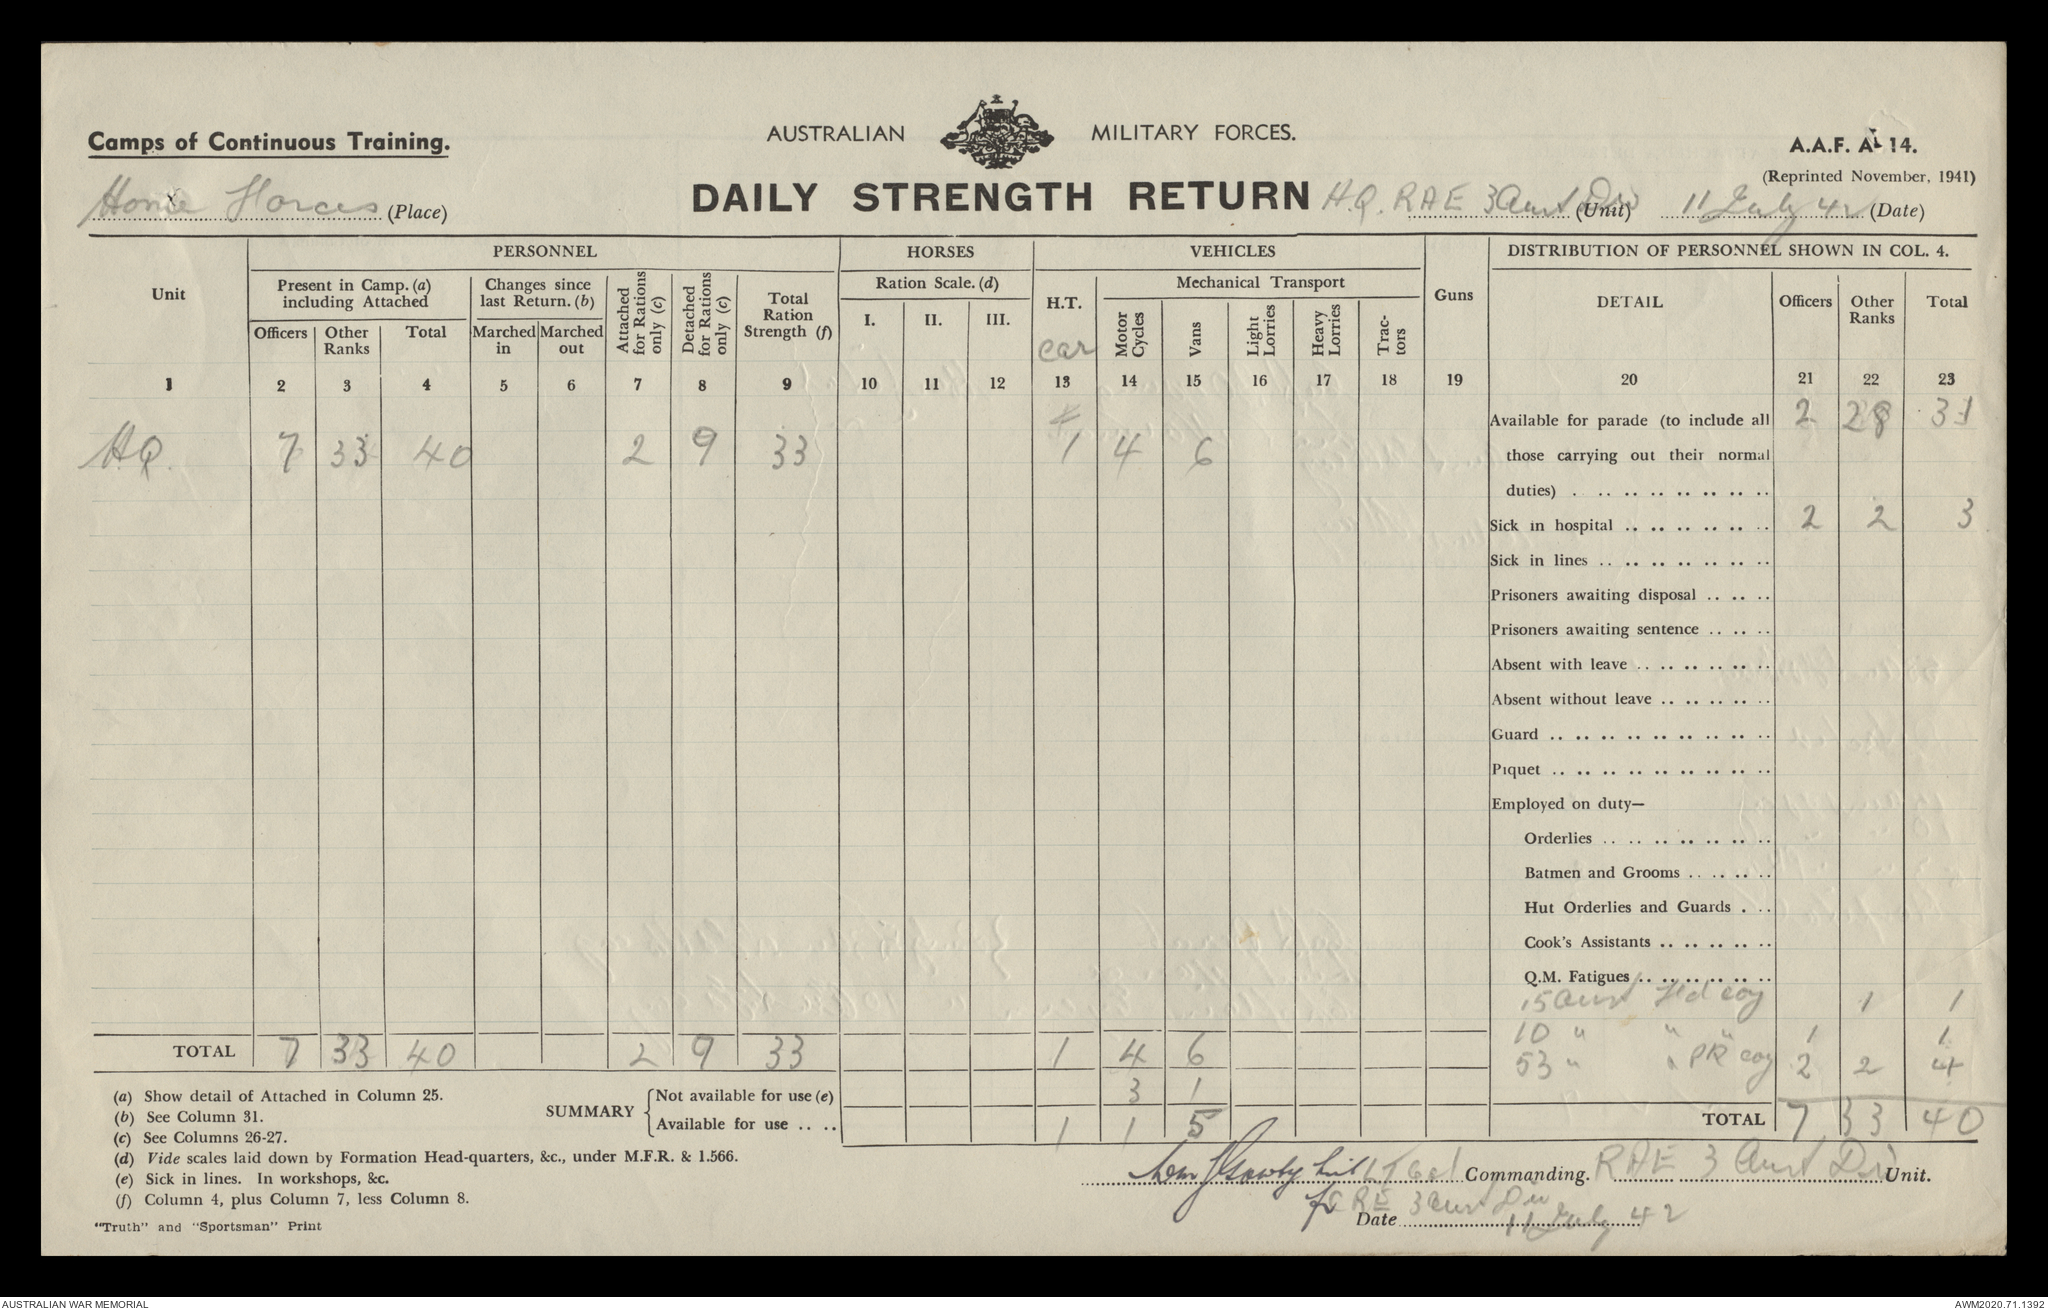 Camps of Continuous Training.
AUSTRALIAN MILITARY FORCES.
A.A.F. A 14.
(Reprinted November, 1941)
Home Forces (Place)
DAILY STRENGTH RETURN H.Q. RAE 3 Aust Div (Unit) 11 July 42 (Date)
PERSONNEL HORSES VEHICLES DISTRIBUTION OF PERSONNEL SHOWN IN COL. 4.
Unit
Present in Camp. (a) including Attached
Changes since last Return. (b)
Attached for Rations only (c)
Detached for Rations only (c)
Total Ration Strength (f)
Ration Scale. (d)
H.T.
car
Mechanical Transport
Guns
DETAIL Officers Other Ranks Total
Officers Other Ranks Total Marched in Marched out
I. II. III.
Motor Cycles Vans Light Lorries Heavy Lorries Trac-tors
1 2 3 4 5 6 7 8 9 10 11 12 13 14 15 16 17 18 19 20 21 22 23
HQ. 7 33 40 2 9 33 1 4 6
Available for parade (to include all 2 28 31
those carrying out their normal
duties) . .. .. .. .. .. .. ..
Sick in hospital .. .. .. .. .. .. 2 2 3
Sick in lines .. .. .. .. .. .. ..
Prisoners awaiting disposal .. .. ..
Prisoners awaiting sentence .. .. ..
Absent with leave .. .. .. .. .. ..
Absent without leave .. .. .. .. ..
Guard .. .. .. .. .. .. .. .. ..
Piquet .. .. .. .. .. .. .. .. ..
Employed on duty—
Orderlies .. .. .. .. .. .. ..
Batmen and Grooms .. .. .. ..
Hut Orderlies and Guards . ..
Cook's Assistants .. .. .. .. ..
Q.M. Fatigues .. .. .. .. .. ..
15 Aust Fd coy 1 1
10 " " 1 1
53 " " PK coy 2 2 4
TOTAL 7 33 40 2 9 33 1 4 6
SUMMARY
Not available for use (e) 3 1
Available for use .. .. 1 1 5
TOTAL 7 33 40
(a) Show detail of Attached in Column 25.
(b) See Column 31.
(c) See Columns 26-27.
(d) Vide scales laid down by Formation Head-quarters, &c., under M.F.R. & 1.566.
(e) Sick in lines. In workshops, &c.
(f) Column 4, plus Column 7, less Column 8.
"Truth" and "Sportsman" Print
Lt Col Commanding. RAE 3 Aust Div Unit.
CRE 3 Aust Div
Date 11 July 42
AUSTRALIAN WAR MEMORIAL
AWM2020.71.1392